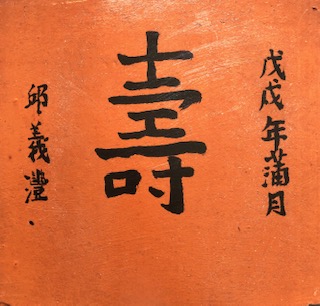 戊戌年蒲月
壽
邱義灃